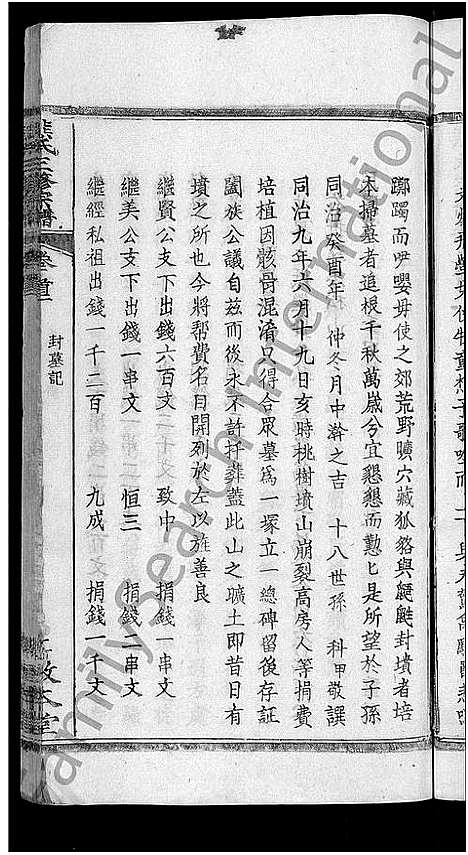 躑躅而咿嚶毋使之郊荒野曠穴藏狐貉與鼯鼪封墳者培
本掃墓者追根千秋萬歲兮宜懇懇而懃匕是所望於子孫
同治癸酉年 仲冬月中澣之吉 十八世孫 科甲敬譔
同治九年六月十九日亥時桃樹墳山崩裂高房人等捐費
培植因骸骨混淆只得合眾墓爲一塚立一總碑留後存証
闔族公議自兹而後永不許扦葬蓋此山之曠土即昔日有
墳之所也今將帮費名目開列於左以旌善良
繼賢公支下出錢六百文 致中 捐錢一串文
繼美公支下出錢一串文 恒三 捐錢一串文
繼經私祖出錢一千二百 九成 捐錢一千文
氏三修宗譜 卷首 封墓記 敦本堂
FamilySearch International